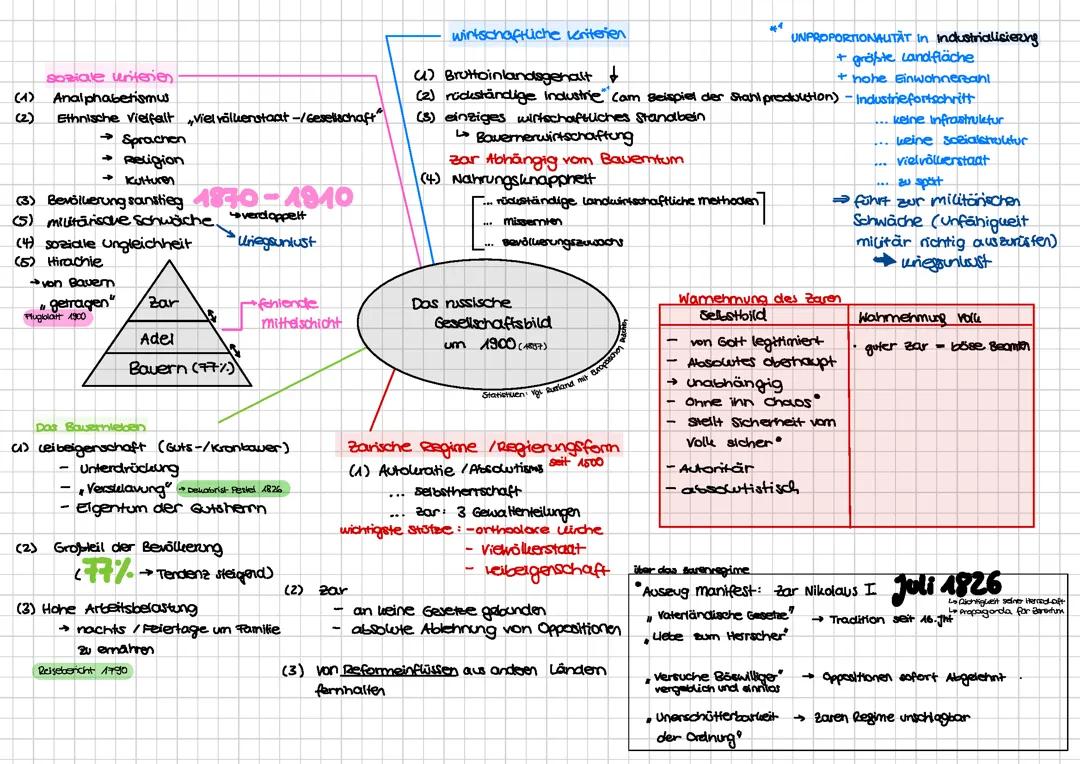 wirtschaftliche Kriterien
(1) Bruttoinlandsgehalt ↓
(2) rückständige Industrie*¹ (am Beispiel der Stahlproduktion)
(3) einziges wirtschaftliches Standbein
↳ Bauernerwirtschaftung
Zar Abhängig vom Bauerntum
(4) Nahrungsknappheit
... rückständige landwirtschaftliche methoden
... missernten
... Bevölkerungszuwachs
*¹ UNPROPORTIONALITÄT in Industrialisierung
+ größte Landfläche
+ hohe Einwohnerzahl
- Industriefortschritt
... keine Infrastruktur
... keine Sozialstruktur
... vielvölkerstaat
... zu spät
⇒ führt zur militärischen
Schwäche (Unfähigkeit
militär richtig auszurüsten)
→ Kriegsunlust
soziale Kriterien
(1) Analphabetismus
(2) Ethnische Vielfalt „Vielvölkerstaat-/Gesellschaft"
→ Sprachen
→ Religion
→ Kulturen
(3) Bevölkerungsanstieg 1870 - 1910
↳ verdoppelt
(5) militärische Schwäche
→ Kriegsunlust
(4) soziale Ungleichheit
(5) Hirachie
→ von Bauern
„getragen"
Flugblatt 1900
Zar
Adel
Bauern (77%)
→ fehlende
mittelschicht
Das russische
Gesellschaftsbild
um 1900 (1897)
Statistiken: Vgl. Russland mit Europäischen
Warnehmung des Zaren
Selbstbild
- von Gott legitimiert
- Absolutes oberhaupt
→ unabhängig
- Ohne ihn Chaos*
- Stellt Sicherheit vom
Volk sicher*
- Autoritär
- absolutistisch
Wahrnehmung Volk
· guter Zar = böse Beamten
Das Bauernleben
(1) Leibeigenschaft (Guts-/Kronbauer)
- Unterdrückung
- „Versklavung" → Dekabrist Pestel 1826
- Eigentum der Gutsherrn
(2) Großteil der Bevölkerung
(77% → Tendenz steigend)
(3) Hohe Arbeitsbelastung
→ nachts / Feiertage um Familie
zu ernähren
Reisebericht 1790
Zarische Regime / Regierungsform
seit 1500
(1) Autokratie / Absolutisms
... Selbstherrschaft
... Zar: 3 Gewaltenteilungen
wichtigste Stütze: - orthodoxe Kirche
- Vielvölkerstaat
- Leibeigenschaft
(2) Zar
- an keine Gesetze gebunden
- absolute Ablehnung von Oppositionen
(3) von Reformeinflüssen aus anderen Ländern
fernhalten
über das Zarenregime
*Auszug Manifest: Zar Nikolaus I. Juli 1826
↳ Richtigkeit seiner Herrschaft
↳ Propaganda für Zarentum
„Vaterländische Gesetze" → Tradition seit 16. Jht
„Liebe zum Herrscher"
„Versuche Böswilliger" → Oppositionen sofort Abgelehnt
vergeblich und sinnlos
„Unerschütterbarkeit → Zaren Regime unschlagbar
der Ordnung"